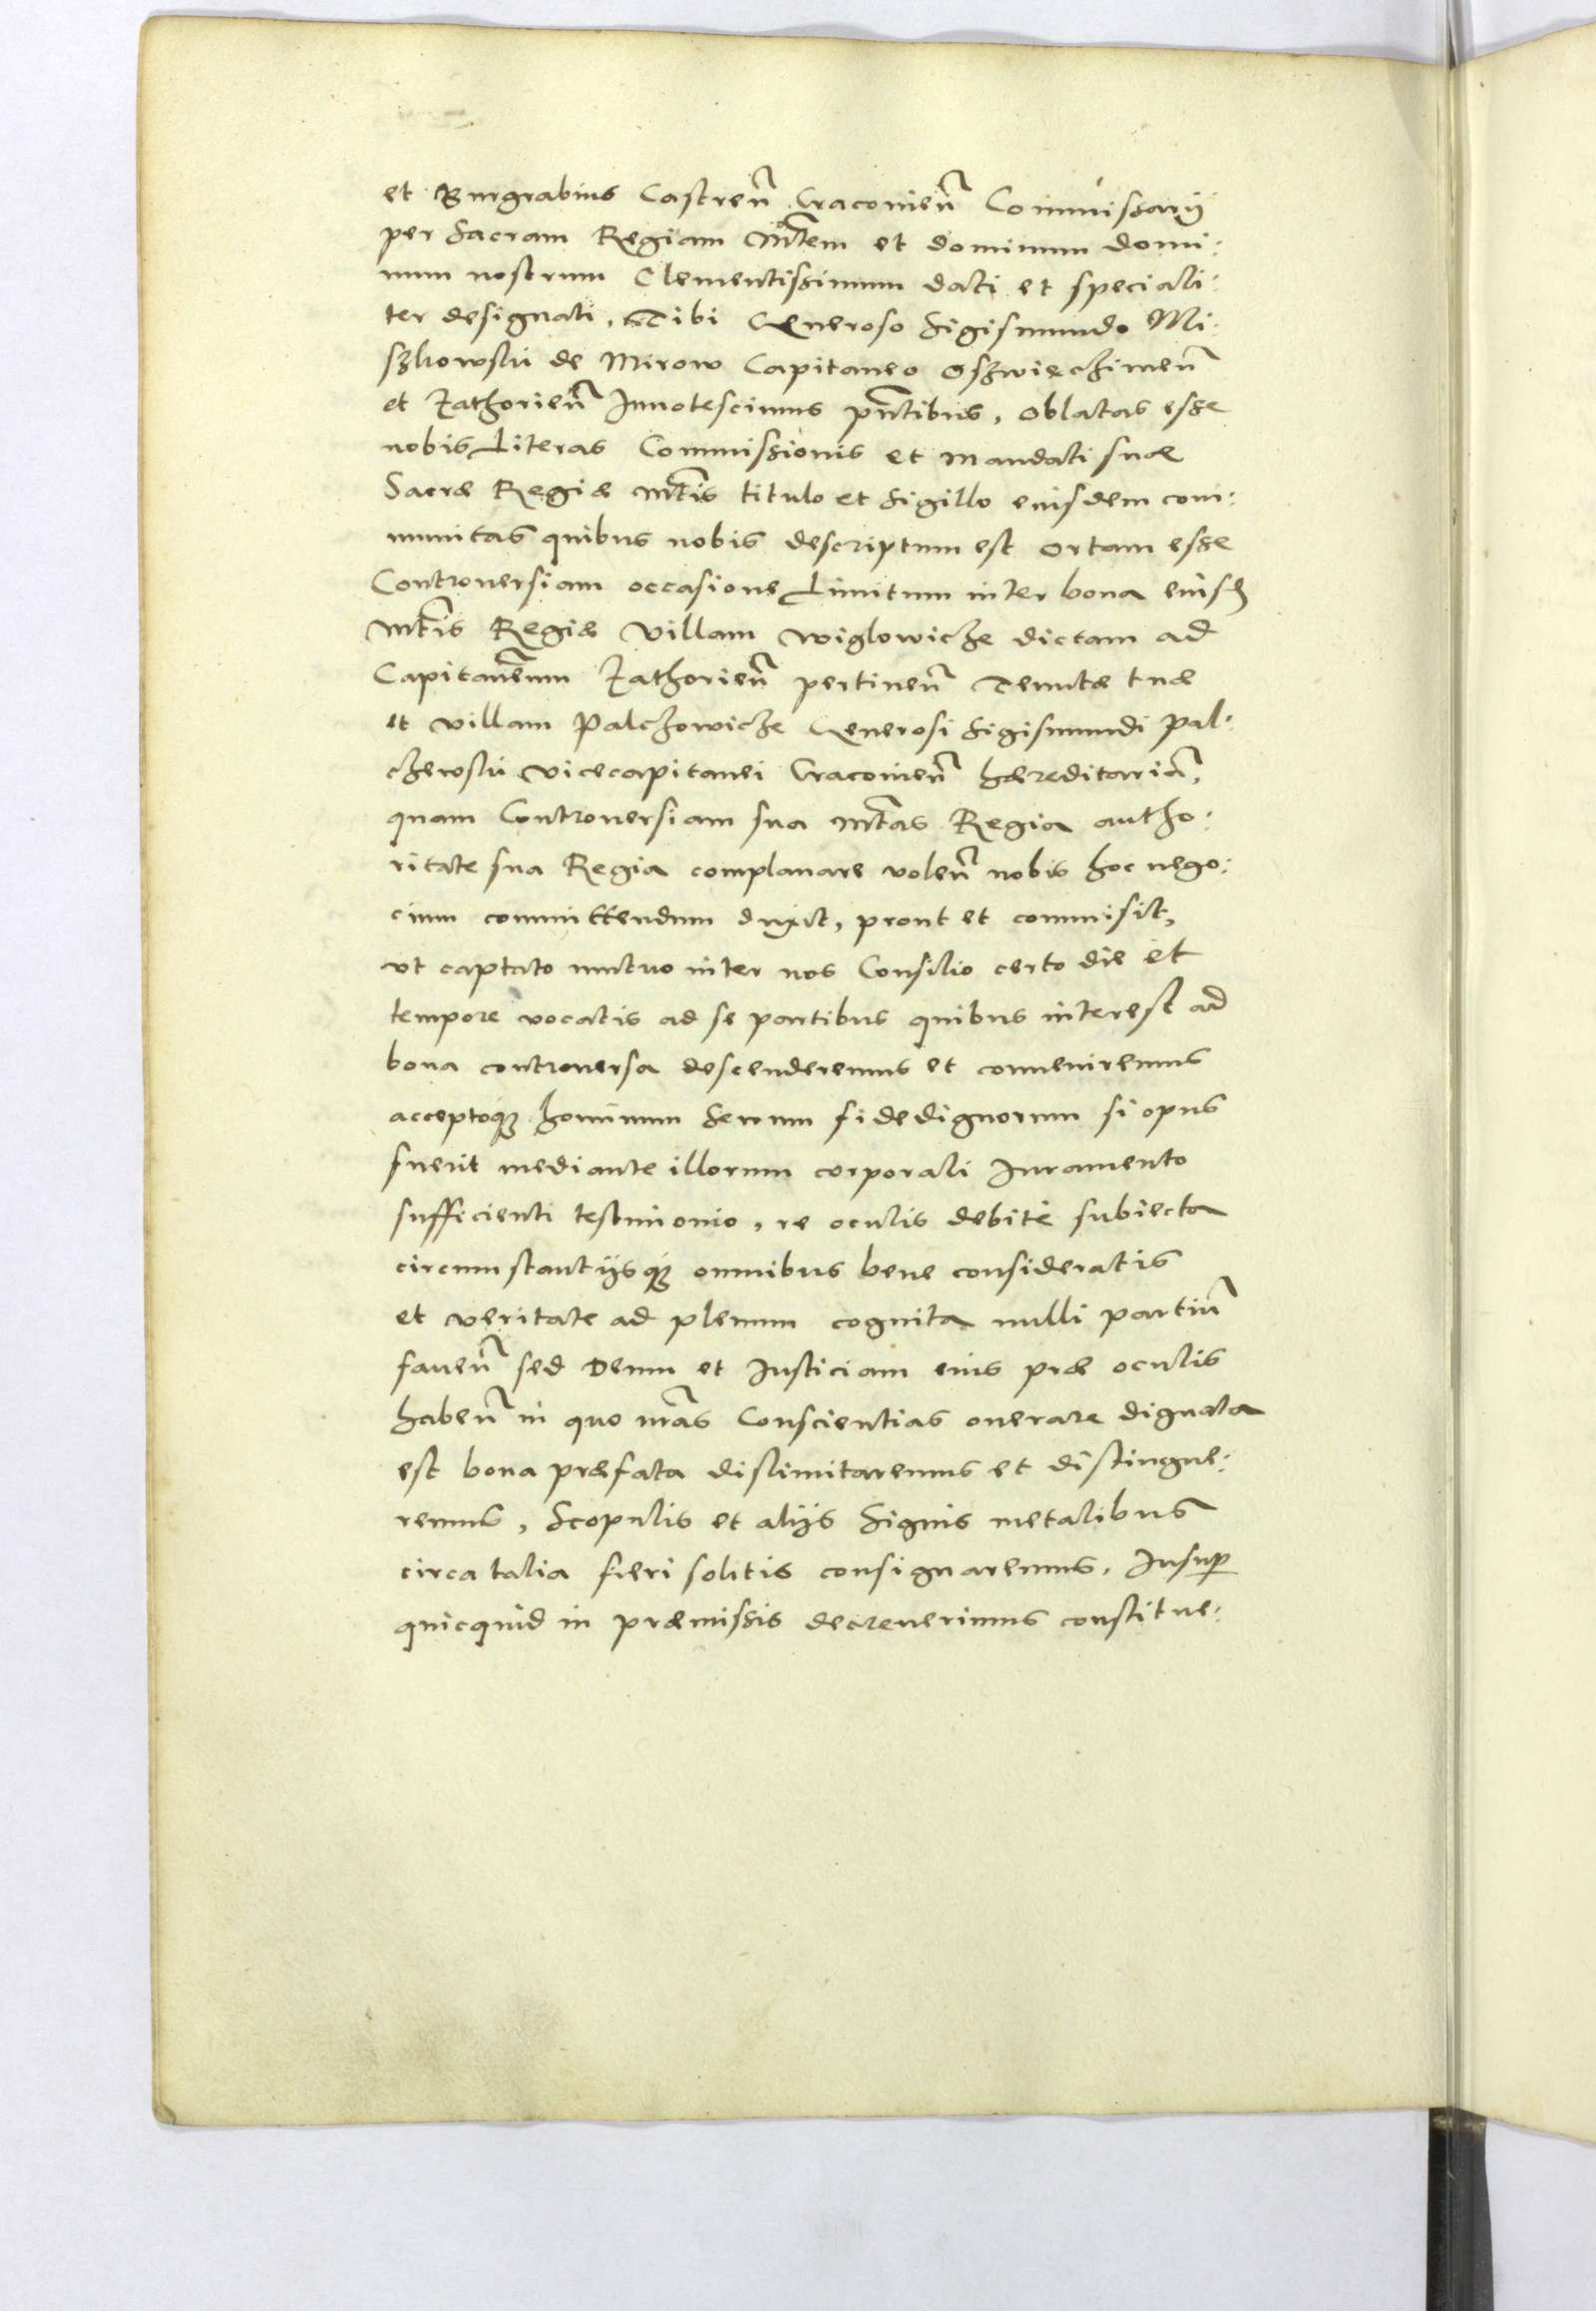 et Burgrabius Castren̄ Cracovien̄ Commissarij
per Sacram Regiam Mtem et dominum domi:
num nostrum Clementissimum dati et speciali:
ter designati, Tibi Generoso Sigismundo Mi:
szkowski de Mirow Capitaneo Oszwieczimen̄
et Zathorien̄ Innotescimus pn̄tibus, Oblatas esse
nobis Literas Commissionis et Mandati suæ
Sacræ Regiæ Mtis titulo et Sigillo eiusdem com:
munitas quibus nobis descriptum est Ortam esse
Controversiam occasione Limitum inter bona eiusd
Mtis Regiæ Villam Wiglowicze dictam ad
Capitaneum Zathorien̄ pertinen̄ Tenutæ tuæ
et Villam Palczowicze Generosi Sigismundi Pal:
czewski Vicecapitanei Cracovien̄ hæreditariā,
quam Controversiam sua Mtas Regia autho:
ritate sua Regia complanare volen̄ nobis hoc nego:
cium committendum duxit, prout et commisit,
vt captato mutuo inter nos Consilio certo die et
tempore vocatis ad se partibus quibus interest ad
bona controversa descenderemus et conveniremus
acceptoq3 hominum Senum fidedignorum si opus
fuerit mediante illorum corporali Iuramento
sufficienti testimonio, re oculis debite subiecta
circumstantijsq3 omnibus bene consideratis
et veritate ad plenum cognita nulli partiū
faven̄ sed Deum et Iusticiam eius præ oculis
haben̄ in quo nrās Conscientias onerare dignata
est bona præfata dislimitaremus et distingue:
remus, Scopulis et alijs Signis metalibus
circa talia fieri solitis consignaremus, Insup
quicquid in præmissis decreverimus constitue: